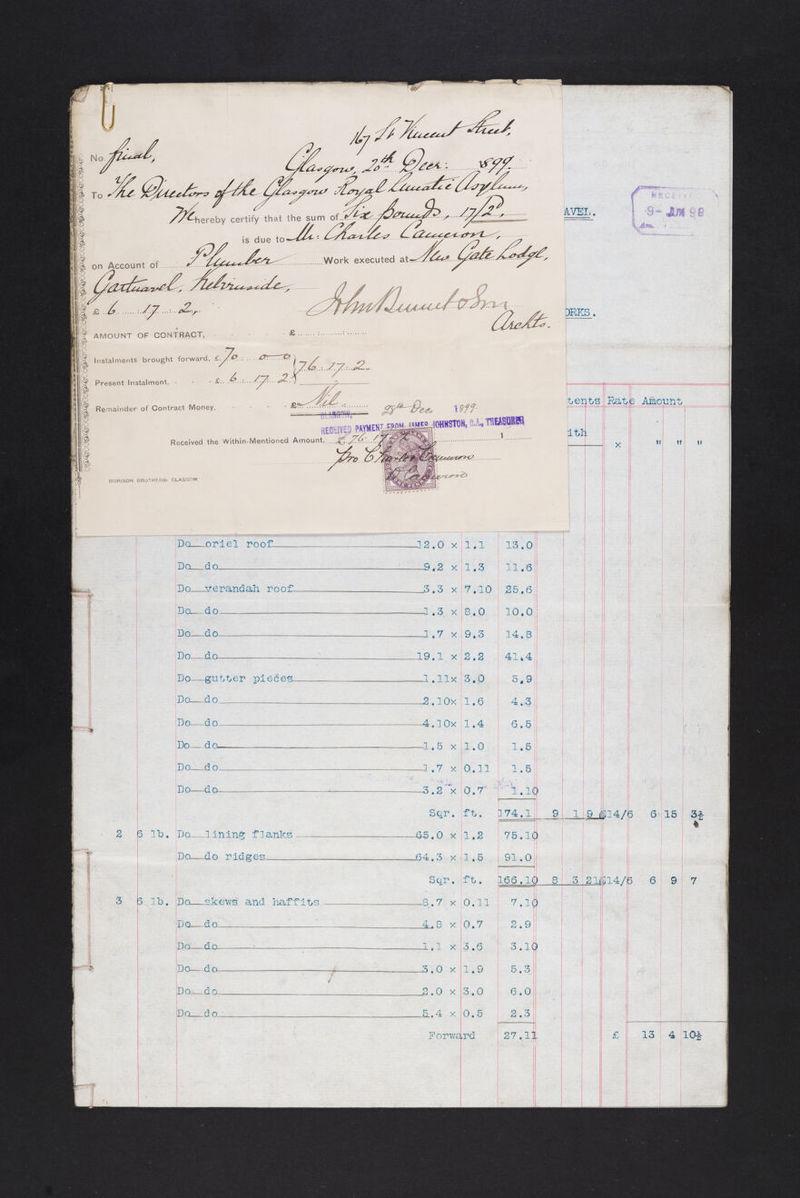 167 St Vincent Street,
No final,
Glasgow, 20th Decr: 1899
To The Directors of the Glasgow Royal Lunatic Asylum,
We hereby certify that the sum of Six Pounds, 17/2d,
is due to Mr: Charles Cameron,
on Account of Plumber Work executed at New Gate Lodge,
Gartnavel, Kelvinside,
£ 6 . 17 . 2,
John Bennet & Son
Archts.
AMOUNT OF CONTRACT, £
Instalments brought forward, £ 70 0 0
76 . 17 . 2
Present Instalment, £ 6 . 17 . 2
Remainder of Contract Money. £ Nil
GLASGOW, 28th Dec 1899
RECEIVED PAYMENT FROM JAMES JOHNSTON, C.A., TREASURER
Received the Within-Mentioned Amount. £ 76 17 2 1
pro Charles Cameron
Cameron
AVEL.
RECEIVED
9- JUN 98
ORKS.
tents Rate Amount
ith
x " " "
Do oriel roof 12.0 x 1.1 13.0
Do do 9.2 x 1.3 11.6
Do verandah roof 3.3 x 7.10 25.6
Do do 1.3 x 8.0 10.0
Do do 1.7 x 9.3 14.8
Do do 19.1 x 2.2 41.4
Do gutter pieces 1.11x 3.0 5.9
Do do 2.10x 1.6 4.3
Do do 4.10x 1.4 6.5
Do do 1.5 x 1.0 1.5
Do do 1.7 x 0.11 1.5
Do do 3.2 x 0.7 1.10
Sqr. ft. 174.1 9 1 9 14/6 6 15 3½
2 6 lb. Do lining flanks 65.0 x 1.2 75.10
Do do ridges 64.3 x 1.5 91.0
Sqr. ft. 166.10 8 3 21 14/6 6 9 7
3 6 lb. Do skews and haffits 8.7 x 0.11 7.10
Do do 4.8 x 0.7 2.9
Do do 1.1 x 3.6 3.10
Do do 3.0 x 1.9 5.3
Do do 2.0 x 3.0 6.0
Do do 5.4 x 0.5 2.3
Forward 27.11 £ 13 4 10½